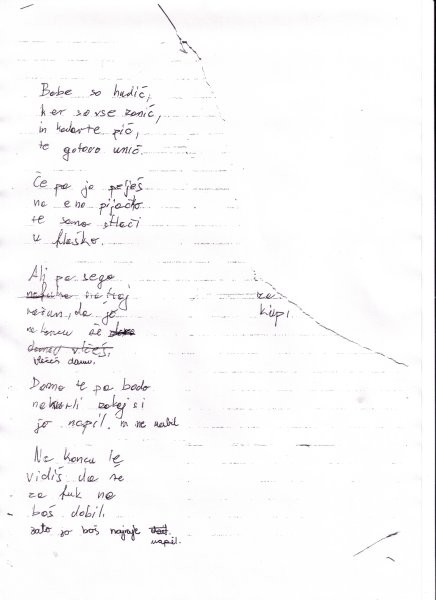 Babe so hudič,
ker so vse zanič,
in kadar te pič,
te gotovo unič.
Če pa jo pelješ
na eno pijačko
te samo stlači
u flaško.
Ali pa sega
na tvoj
račun, da jo
na koncu še
domov vlečeš,
vlečeš damu.
za
kupi
Doma te pa bodo
nakurli zakaj si
jo napil. in ne nabil
Na koncu le
vidiš da še
za fuk na
boš dobil.
zato jo boš najraje
napil.